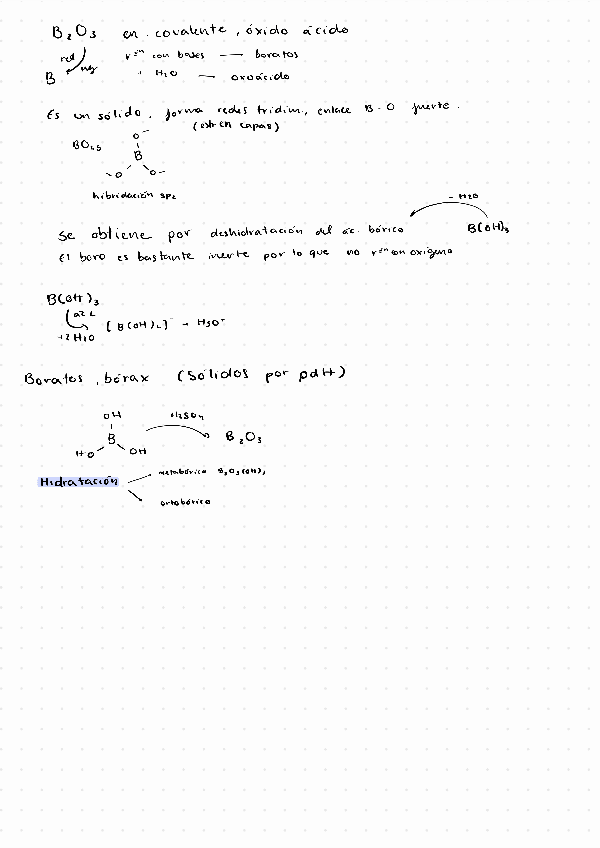 B₂O₃ en. covalente, óxido ácido
red rxⁿ con bases — boratos
B Mg + H₂O — oxoácido
Es un sólido, forma redes tridim, enlace B-O fuerte.
(estr en capas)
BO₁,₅
O⁻
B
⁻O O⁻
hibridación sp₂
- H₂O
Se obtiene por deshidratación del ác. bórico B(OH)₃
El boro es bastante inerte por lo que no rxⁿ con oxígeno
B(OH)₃
[B(OH)₄]⁻ - H₃O⁺
+2H₂O
Boratos, bórax (Sólidos por pdH)
OH
H₂SO₄
B B₂O₃
HO OH
metabórico B₃O₃(OH)₃
Hidratación
ortobórico